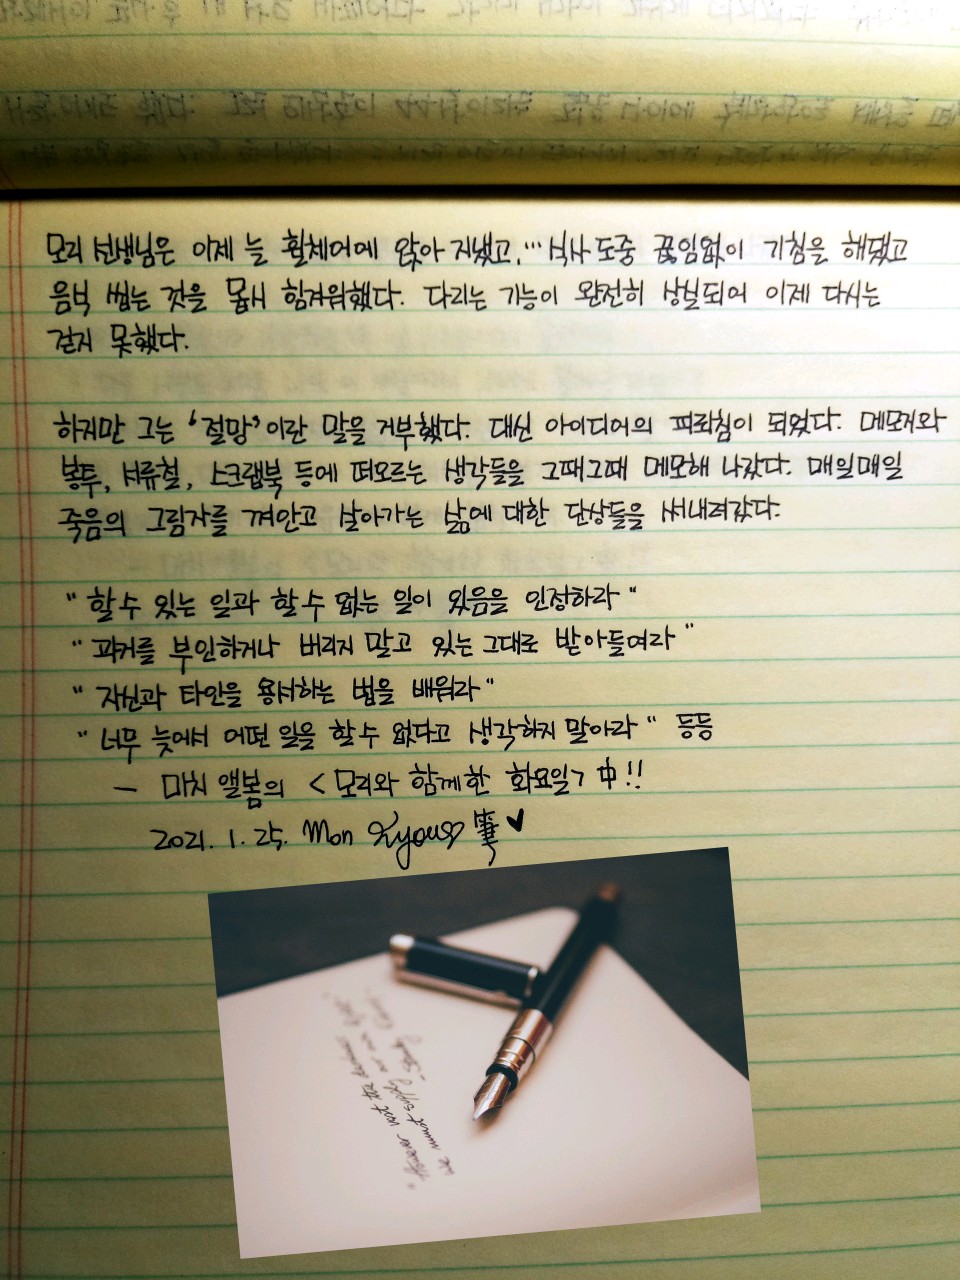 모리 선생님은 이제 늘 휠체어에 앉아 지냈고,… 식사 도중 끊임없이 기침을 해댔고
음식 씹는 것을 몹시 힘겨워했다. 다리는 기능이 완전히 상실되어 이제 다시는
걷지 못했다.
하지만 그는 '절망'이란 말을 거부했다. 대신 아이디어의 피뢰침이 되었다. 메모지와
봉투, 서류철, 스크랩북 등에 떠오르는 생각들을 그때그때 메모해 나갔다. 매일매일
죽음의 그림자를 껴안고 살아가는 삶에 대한 단상들을 써내려갔다.
"할 수 있는 일과 할 수 없는 일이 있음을 인정하라"
"과거를 부인하거나 버리지 말고 있는 그대로 받아들여라"
"자신과 타인을 용서하는 법을 배워라"
"너무 늦어서 어떤 일을 할 수 없다고 생각하지 말아라" 등등
— 마치 앨봄의 <모리와 함께한 화요일> 中!!
2021. 1. 25. Mon
"However vast the darkness
we must supply our own light."
- Stanley